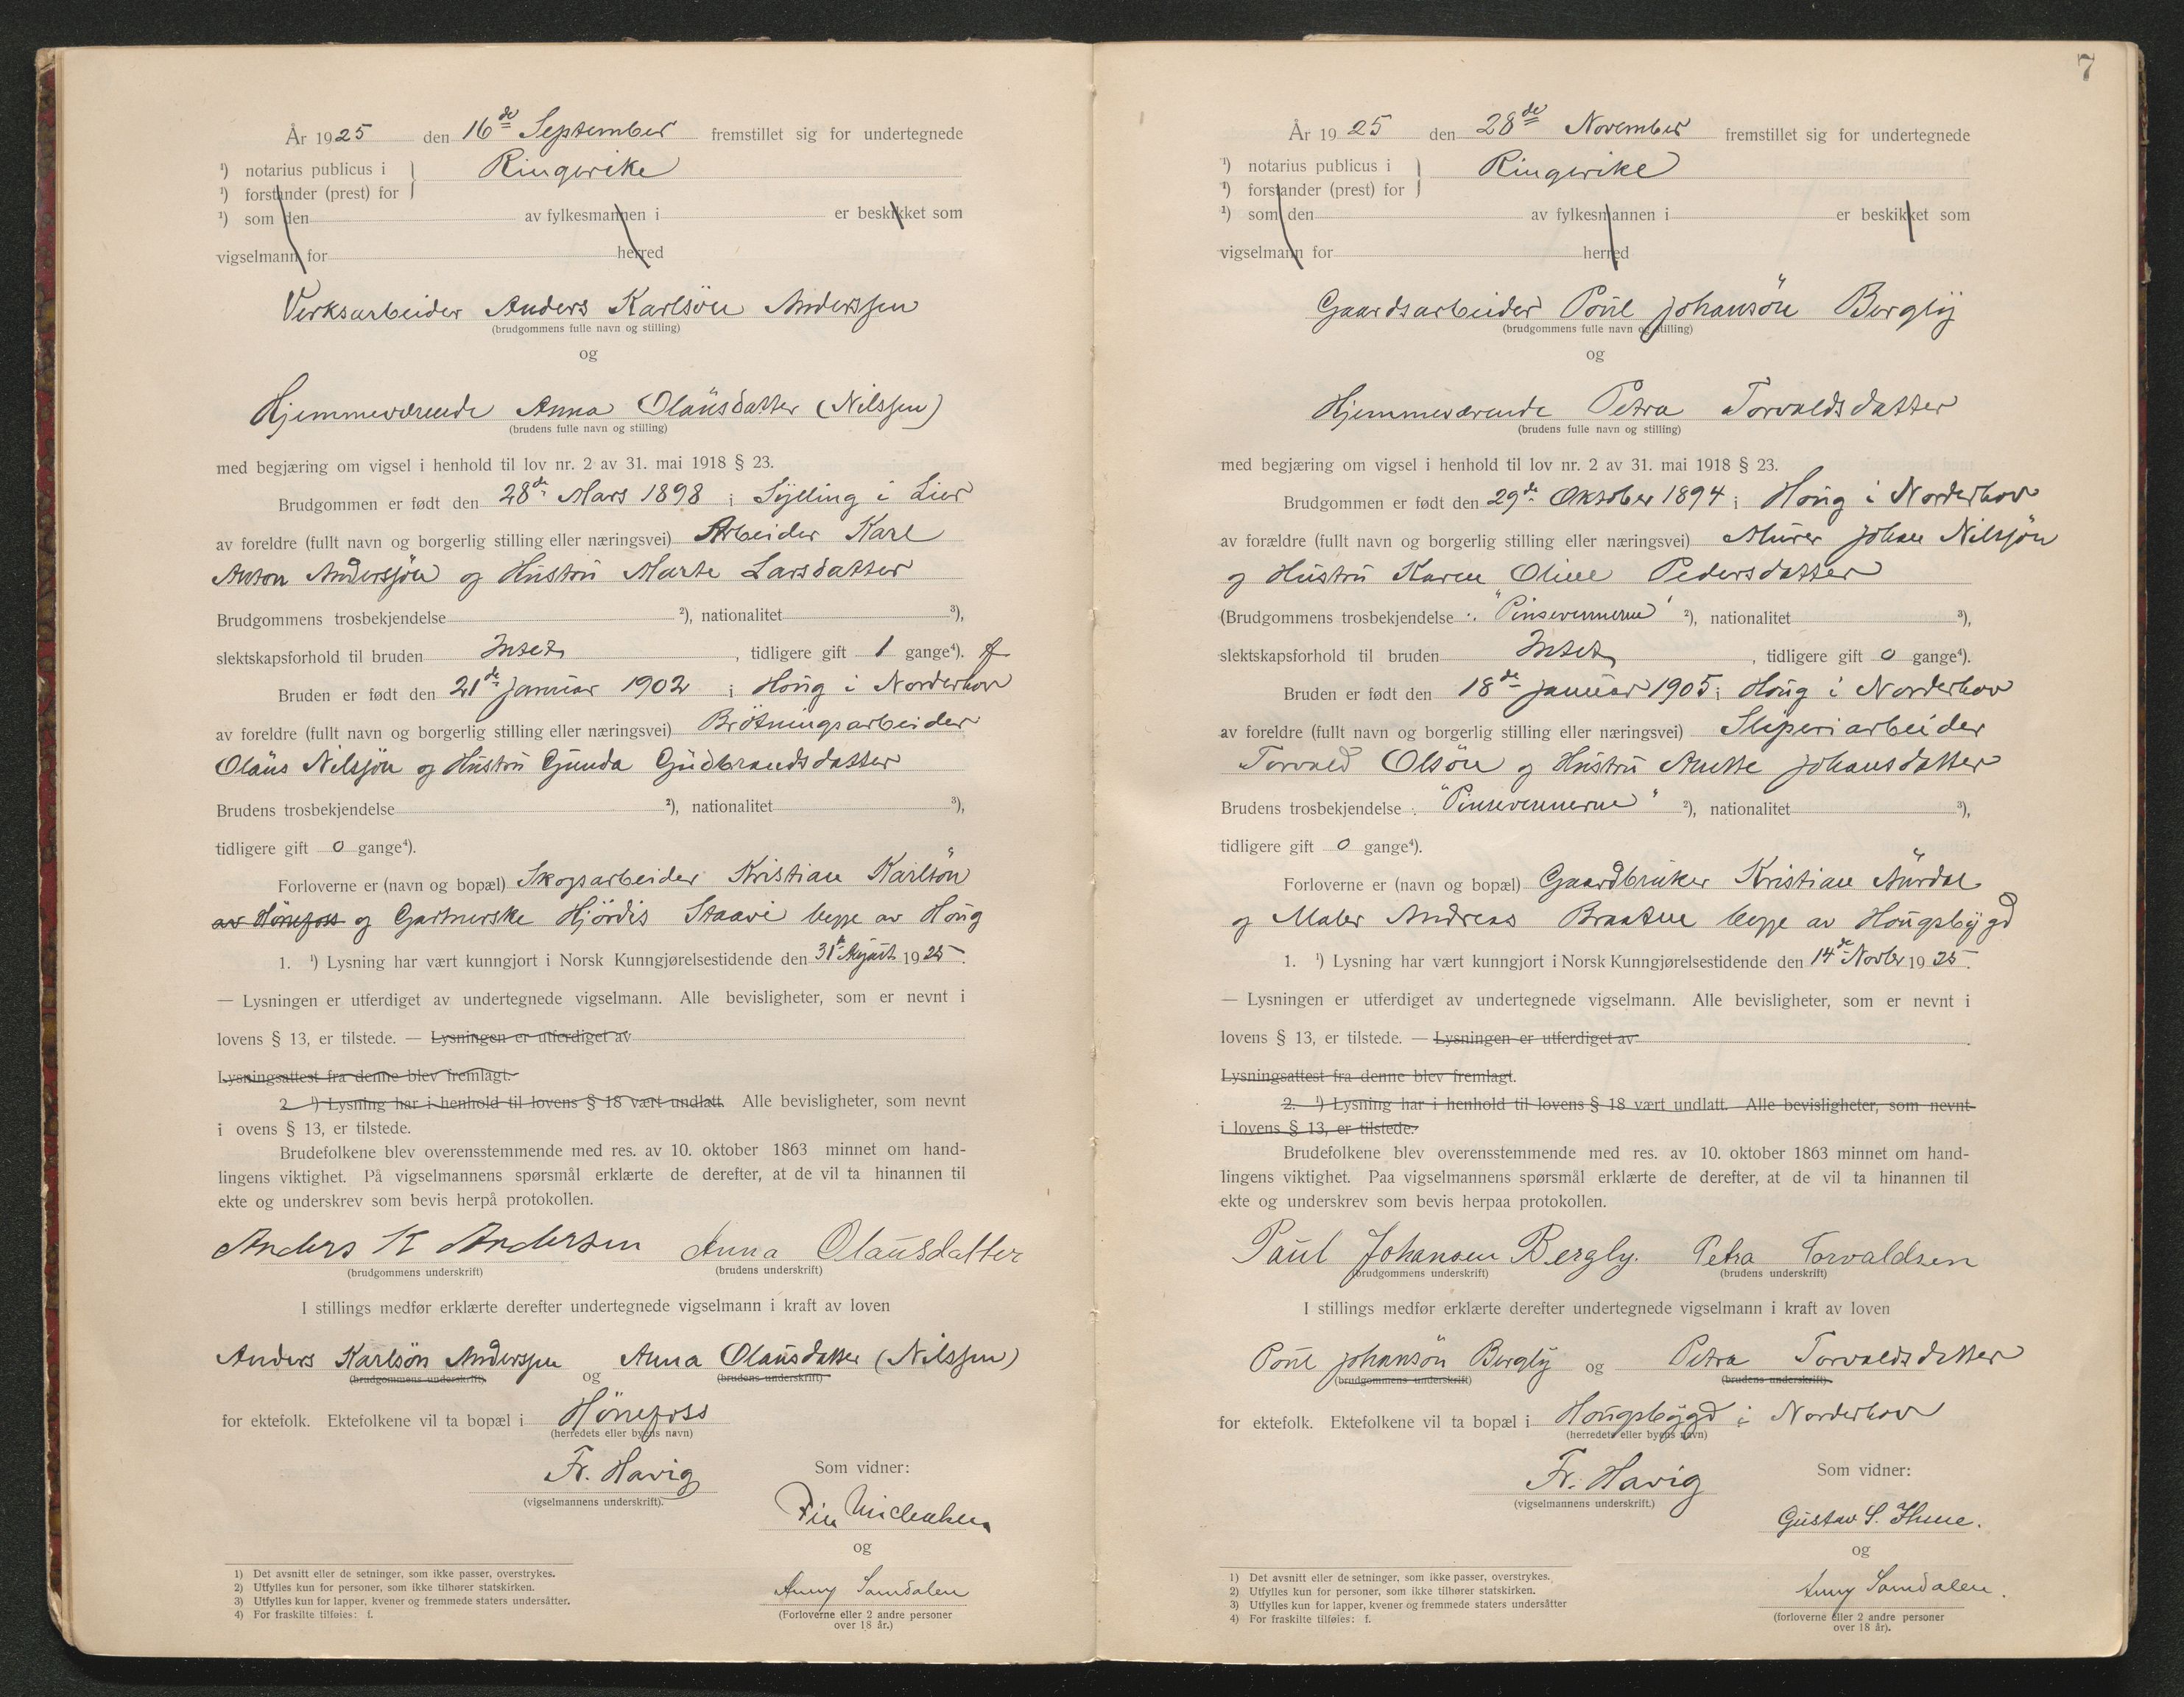 År 1925 den 16de September fremstillet sig for undertegnede
¹) notarius publicus i } Ringerike
¹) forstander (prest) for
¹) som den av fylkesmannen i er beskikket som
vigselmann for herred
Verksarbeider Anders Karlsön Anderssen
(brudgommens fulle navn og stilling)
og
Hjemmeværende Anna Olausdatter (Nilssen)
(brudens fulle navn og stilling)
med begjæring om vigsel i henhold til lov nr. 2 av 31. mai 1918 § 23.
Brudgommen er født den 28de Mars 1898 i Sylling i Lier
av foreldre (fullt navn og borgerlig stilling eller næringsvei) Arbeider Karl
Anton Andersjön og Hustru Marte Larsdatter
Brudgommens trosbekjendelse ²), nationalitet ³),
slektskapsforhold til bruden Intet, tidligere gift 1 gange⁴). f
Bruden er født den 21de januar 1902 i Houg i Norderhov
av foreldre (fullt navn og borgerlig stilling eller næringsvei) Brötningsarbeider
Olaus Nilsjön og Hustru Gunda Gudbrandsdatter
Brudens trosbekjendelse ²), nationalitet ³),
tidligere gift 0 gange⁴).
Forloverne er (navn og bopæl) Skogsarbeider Kristian Karlsön
av Hönefoss og Gartnerske Hjördis Staavi begge av Houg
1. ¹) Lysning har vært kunngjort i Norsk Kunngjørelsestidende den 31te August 1925.
— Lysningen er utferdiget av undertegnede vigselmann. Alle bevisligheter, som er nevnt i
lovens § 13, er tilstede. — Lysningen er utferdiget av
Lysningsattest fra denne blev fremlagt.
2. ¹) Lysning har i henhold til lovens § 18 vært undlatt. Alle bevisligheter, som nevnt
i ovens § 13, er tilstede.
Brudefolkene blev overensstemmende med res. av 10. oktober 1863 minnet om hand-
lingens viktighet. På vigselmannens spørsmål erklærte de derefter, at de vil ta hinannen til
ekte og underskrev som bevis herpå protokollen.
Anders K Andersen Anna Olausdatter
(brudgommens underskrift) (brudens underskrift)
I stillings medfør erklærte derefter undertegnede vigselmann i kraft av loven
Anders Karlsön Anderssen og Anna Olausdatter (Nilssen)
(brudgommens underskrift) (brudens underskrift)
for ektefolk. Ektefolkene vil ta bopæl i Hönefoss
(herredets eller byens navn)
Fr. Havig
(vigselmannens underskrift).
Som vidner:
og
Anny Samdalen
(Forloverne eller 2 andre personer
over 18 år.)
1) Det avsnitt eller de setninger, som ikke passer, overstrykes.
2) Utfylles kun for personer, som ikke tilhører statskirken.
3) Utfylles kun for lapper, kvener og fremmede staters undersåtter.
4) For fraskilte tilføies: f.
7
År 1925 den 28de November fremstillet sig for undertegnede
¹) notarius publicus i } Ringerike
¹) forstander (prest) for
¹) som den av fylkesmannen i er beskikket som
vigselmann for herred
Gaardsarbeider Poul Johansön Bergly
(brudgommens fulle navn og stilling)
og
Hjemmeværende Petra Torvaldsdatter
(brudens fulle navn og stilling)
med begjæring om vigsel i henhold til lov nr. 2 av 31. mai 1918 § 23.
Brudgommen er født den 29de Oktober 1894 i Houg i Norderhov
av forældre (fullt navn og borgerlig stilling eller næringsvei) Murer Johan Nilsjön
og Hustru Karen Oline Pedersdatter
(Brudgommens trosbekjendelse "Pinsevennerne" ²), nationalitet ³),
slektskapsforhold til bruden Intet, tidligere gift 0 gange⁴).
Bruden er født den 18de januar 1905 i Houg i Norderhov
av foreldre (fullt navn og borgerlig stilling eller næringsvei) Sliperiarbeider
Torvald Olsön og Hustru Anette Johansdatter
Brudens trosbekjendelse "Pinsevennerne" ²), nationalitet ³),
tidligere gift 0 gange⁴).
Forloverne er (navn og bopæl) Gaardbruker Kristian Aurdal
og Maler Andreas Braaten begge av Hougsbygd
1. ¹) Lysning har vært kunngjort i Norsk Kunngjørelsestidende den 14de Novbr 1925.
— Lysningen er utferdiget av undertegnede vigselmann. Alle bevisligheter, som er nevnt i
lovens § 13, er tilstede. — Lysningen er utferdiget av
Lysningsattest fra denne blev fremlagt.
2. ¹) Lysning har i henhold til lovens § 18 vært undlatt. Alle bevisligheter, som nevnt
i lovens § 13, er tilstede.
Brudefolkene blev overensstemmende med res. av 10. oktober 1863 minnet om hand-
lingens viktighet. Paa vigselmannens spørsmål erklærte de derefter, at de vil ta hinannen til
ekte og underskrev som bevis herpaa protokollen.
Paul Johansen Bergly. Petra Torvaldsen
(brudgommens underskrift) (brudens underskrift)
I stillings medfør erklærte derefter undertegnede vigselmann i kraft av loven
Poul Johansön Bergly og Petra Torvaldsdatter
(brudgommens underskrift) (brudens underskrift)
for ektefolk. Ektefolkene vil ta bopæl i Hougsbygd i Norderhov
(herredets eller byens navn)
Fr. Havig
(vigselmannens underskrift.)
Som vidner:
Gustav S. Thune.
og
Anny Samdalen.
(forloverne eller 2 andre personer
over 18 år).
1) Det avsnitt eller de setninger, som ikke passer, overstrykes.
2) Utfylles kun for personer, som ikke tilhører statskirken.
3) Utfylles kun for lapper, kvener og fremmede staters undersåtter
4) For fraskilte tilføies: f.